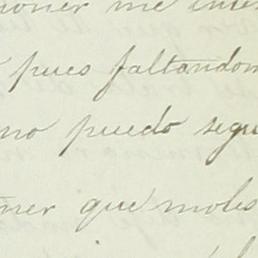 oner me
pues faltandom
no puedo segu
ner que moles